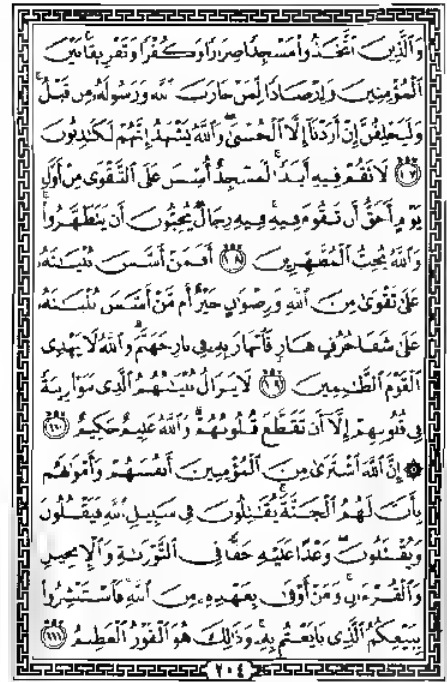 وَٱلَّذِينَ ٱتَّخَذُوا۟ مَسْجِدًا ضِرَارًا وَكُفْرًا وَتَفْرِيقًۢا بَيْنَ
ٱلْمُؤْمِنِينَ وَإِرْصَادًا لِّمَنْ حَارَبَ ٱللَّهَ وَرَسُولَهُۥ مِن قَبْلُ ۚ
وَلَيَحْلِفُنَّ إِنْ أَرَدْنَآ إِلَّا ٱلْحُسْنَىٰ ۖ وَٱللَّهُ يَشْهَدُ إِنَّهُمْ لَكَـٰذِبُونَ
١٠٧ لَا تَقُمْ فِيهِ أَبَدًا ۚ لَّمَسْجِدٌ أُسِّسَ عَلَى ٱلتَّقْوَىٰ مِنْ أَوَّلِ
يَوْمٍ أَحَقُّ أَن تَقُومَ فِيهِ ۚ فِيهِ رِجَالٌ يُحِبُّونَ أَن يَتَطَهَّرُوا۟ ۚ
وَٱللَّهُ يُحِبُّ ٱلْمُطَّهِّرِينَ ١٠٨ أَفَمَنْ أَسَّسَ بُنْيَـٰنَهُۥ
عَلَىٰ تَقْوَىٰ مِنَ ٱللَّهِ وَرِضْوَٰنٍ خَيْرٌ أَم مَّنْ أَسَّسَ بُنْيَـٰنَهُۥ
عَلَىٰ شَفَا جُرُفٍ هَارٍ فَٱنْهَارَ بِهِۦ فِى نَارِ جَهَنَّمَ ۗ وَٱللَّهُ لَا يَهْدِى
ٱلْقَوْمَ ٱلظَّـٰلِمِينَ ١٠٩ لَا يَزَالُ بُنْيَـٰنُهُمُ ٱلَّذِى بَنَوْا۟ رِيبَةً
فِى قُلُوبِهِمْ إِلَّآ أَن تَقَطَّعَ قُلُوبُهُمْ ۗ وَٱللَّهُ عَلِيمٌ حَكِيمٌ ١١٠
۞ إِنَّ ٱللَّهَ ٱشْتَرَىٰ مِنَ ٱلْمُؤْمِنِينَ أَنفُسَهُمْ وَأَمْوَٰلَهُم
بِأَنَّ لَهُمُ ٱلْجَنَّةَ ۚ يُقَـٰتِلُونَ فِى سَبِيلِ ٱللَّهِ فَيَقْتُلُونَ
وَيُقْتَلُونَ ۖ وَعْدًا عَلَيْهِ حَقًّا فِى ٱلتَّوْرَىٰةِ وَٱلْإِنجِيلِ
وَٱلْقُرْءَانِ ۚ وَمَنْ أَوْفَىٰ بِعَهْدِهِۦ مِنَ ٱللَّهِ ۚ فَٱسْتَبْشِرُوا۟
بِبَيْعِكُمُ ٱلَّذِى بَايَعْتُم بِهِۦ ۚ وَذَٰلِكَ هُوَ ٱلْفَوْزُ ٱلْعَظِيمُ ١١١
٢٠٤